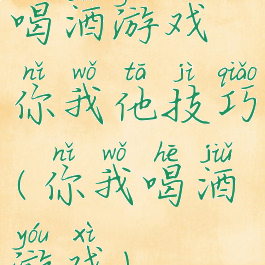 喝酒游戏
nǐ wǒ tā jì qiǎo
你我他技巧
nǐ wǒ hē jiǔ
(你我喝酒
yóu xì
游戏)